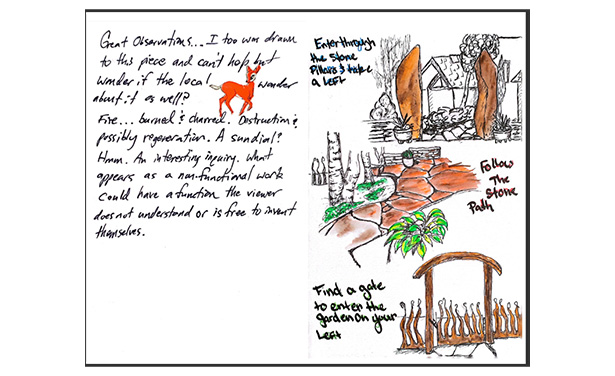 Great Observations... I too was drawn
to this piece and can't help but
wonder if the local wonder
about it as well?
Fire... burned & charred. Destruction &
possibly regeneration. A sundial?
Hmm. An interesting inquiry. What
appears as a non-functional work
could have a function the viewer
does not understand or is free to invent
themselves.
Enter through
the Stone
Pillars & take
a Left
Follow
The
Stone
Path
Find a gate
to enter the
garden on your
Left